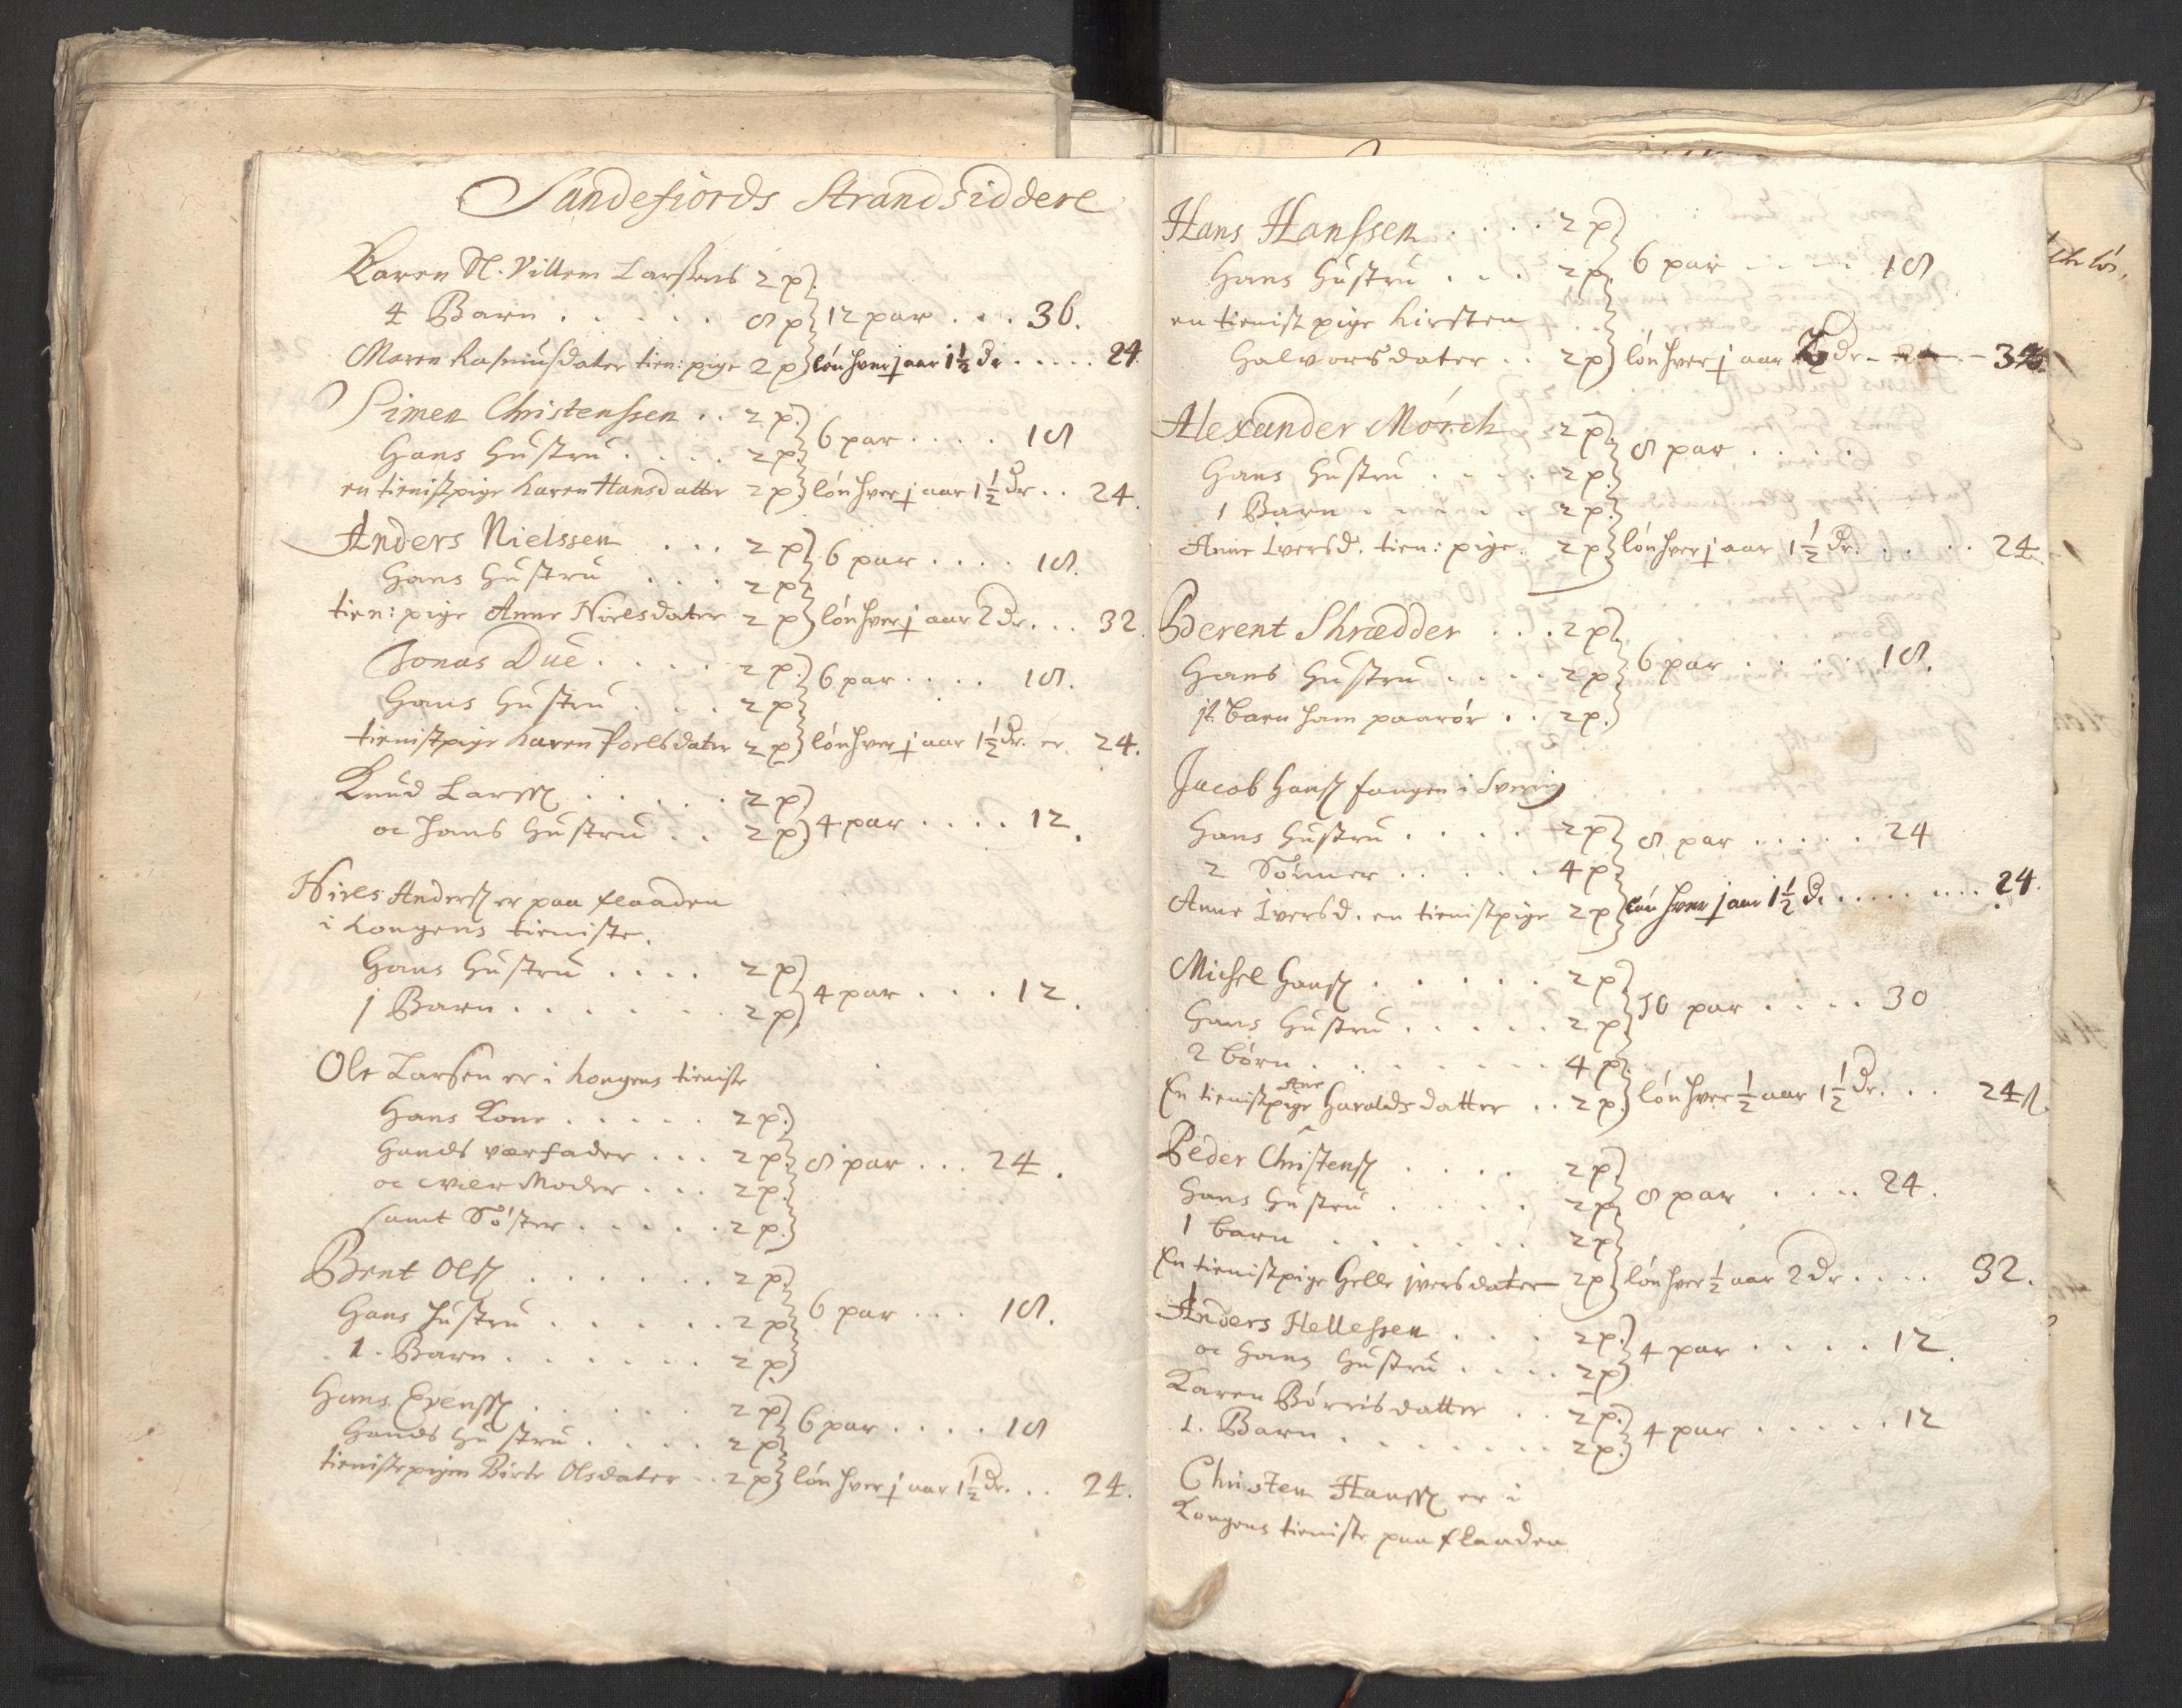 Sandefiords Strandsiddere
Karen Sl. Villem Larsens 2 p
4 Barn . . . . . 8 p 12 par . . . 36.
Maren Rasmusdater tien: pige 2 p lön hver j aar 1½ dr . . . . . 24.
Simen Christenssen . . 2 p.
Hans Hustru . . . . 2 p. 6 par . . . . 18
en tienistpige Karen Hansdatter 2 p. lön hver j aar 1½ Dr . . 24.
Anders Nielssen . . . 2 p
Hans Hustru . . . 2 p. 6 par . . . . 18.
tien: pige Anne Nielsdater 2 p lön hver j aar 2 Dr. . . 32.
Jonas Due . . . . 2 p.
Hans Hustru . . . 2 p 6 par . . . . 18.
tienistpige Karen Poelsdater 2 p lön hver j aar 1½ Dr. er. 24.
Knud Larss . . . . . 2 p
oc hans Hustru . . 2 p 4 par . . . . 12.
Niels Anderss er paa flaaden
i Kongens tieniste.
Hans Hustru . . . . 2 p
j Barn . . . . . . 2 p 4 par . . . 12.
Ole Larsen er i Kongens tieniste
Hans Kone . . . . . 2 p.
Hands værfader . . . 2 p. 8 par . . . 24.
oc værModer . . . 2 p.
samt Söster . . . . . 2 p.
Bent Olss . . . . . . 2 p.
Hans Hustru . . . . . 2 p 6 par . . . 18.
1. Barn . . . . . . 2 p
Hans Evenss . . . . . 2 p
Hands Hustru . . . . 2 p 6 par . . . . 18
tienistepigen Birte Olsdater . . 2 p lön hver j aar 1½ Dr. . . 24.
Hans Hanssen . . . . 2 p
Hans Hustru . . . 2 p. 6 par . . . . 18
en tienist pige Kirsten
Halvorsdater . . 2 p lön hver j aar 2 Dr - - 32.
Alexander Mörch . . 2 p
Hans Hustru . . . . 2 p. 8 par . . . . .
1 Barn . . . . . 2 p.
Anne Iversd. tien: pige. 2 p lön hver j aar 1½ Dr. . . . . 24.
Berent Skrædder . . . 2 p
Hans Hustru . . . . 2 p 6 par . . . . . 18.
it barn ham paarör . . 2 p.
Jacob Hanss fangen i Sverrig
Hans Hustru . . . . 2 p 8 par . . . . . 24
2 Sönner . . . . . 4 p.
Anne Iversd. en tienistpige 2 p lön hver j aar 1½ D. . . . . . . 24.
Michel Hanss . . . . . . 2 p
Hans Hustru . . . . . 2 p 10 par . . . . 30
2 börn . . . . . . . 4 p.
En tienistpige Ane Haraldsdatter . . 2 p. lön hver ½ aar 1½ Dr. . . 24 ß
Peder Christenss . . . . 2 p
Hans Hustru . . . . . 2 p 8 par . . . . 24.
1 barn . . . . . . 2 p
En tienistpige Helle jversdater 2 p lön hver ½ aar 2 Dr . . . . 32.
Anders Hellessen . . . 2 p.
oc Hans Hustru . . . . 2 p 4 par . . . . 12.
Karen Börrisdatter . . 2 p.
1. Barn . . . . . . . 2 p. 4 par . . . . . 12
Christen Hanss er i
Kongens tieniste paa flaaden